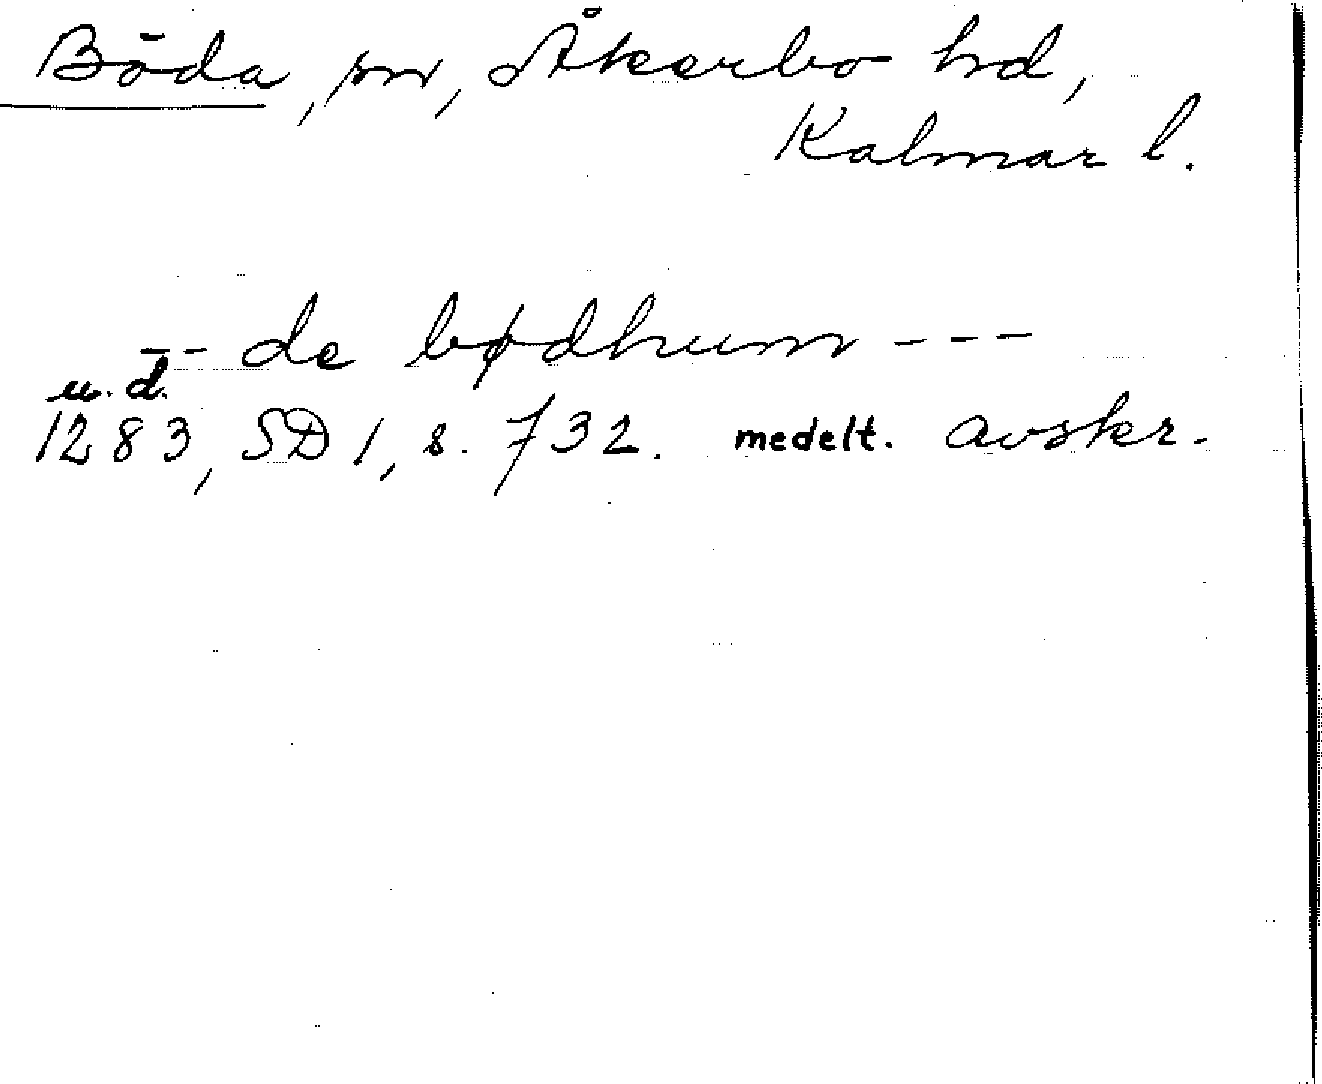 Böda, sn, Åkerbo hd,
Kalmar l.
-- de bødhum ---
u.d.
1283, SD 1, s. 732. medelt. avskr.